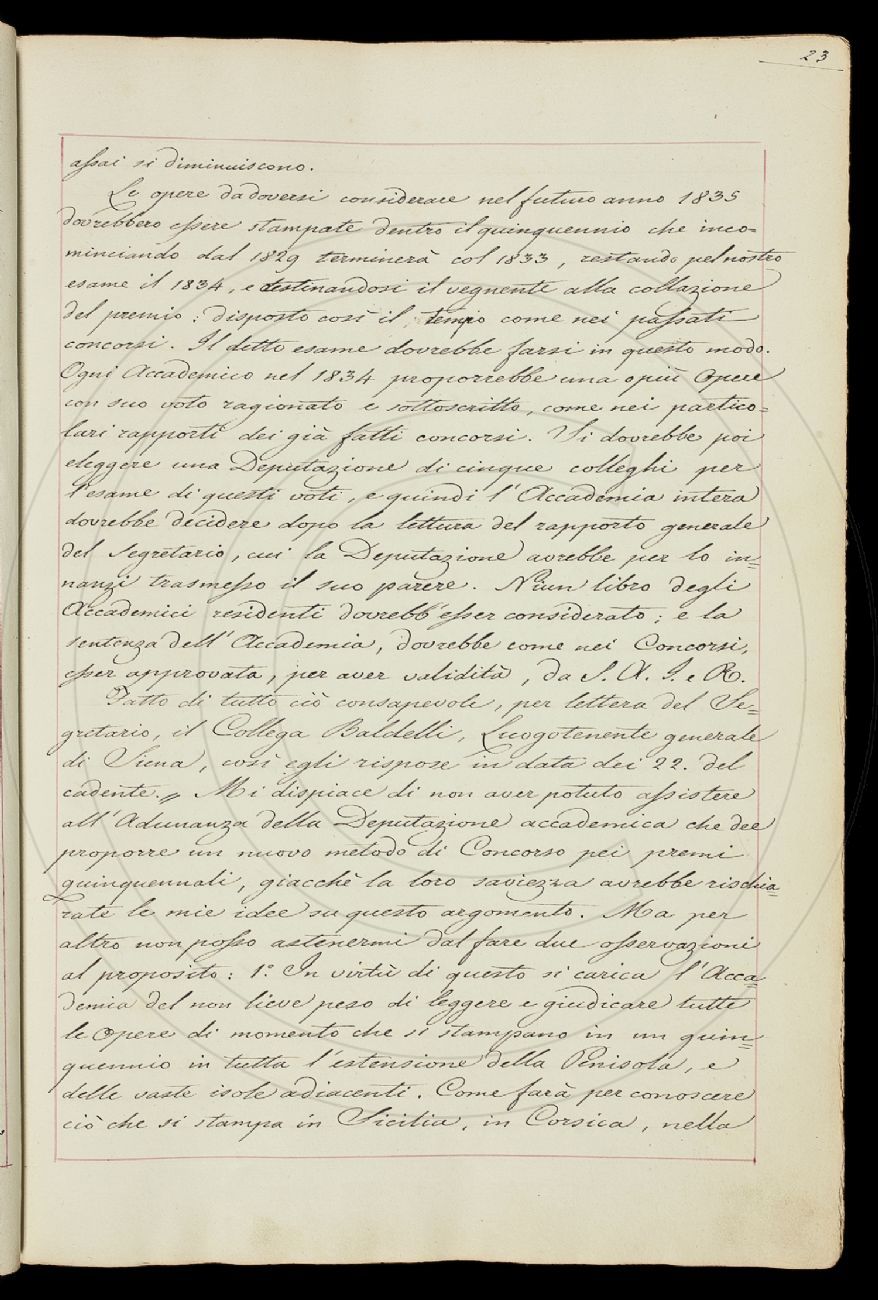 23
assai si diminuiscono.
Le opere da doversi considerare nel futuro anno 1835
dovrebbero essere stampate dentro il quinquennio che inco=
minciando dal 1829 terminerà col 1833, restando pel nostro
esame il 1834, e destinandosi il vegnente alla collazione
del premio: disposto così il tempo come nei passati
concorsi. Il detto esame dovrebbe farsi in questo modo.
Ogni Accademico nel 1834 proporrebbe una o più Opere
con suo voto ragionato e sottoscritto, come nei partico=
lari rapporti dei già fatti concorsi. Si dovrebbe poi
eleggere una Deputazione di cinque colleghi per
l'esame di questi voti, e quindi l'Accademia intera
dovrebbe decidere dopo la lettura del rapporto generale
del Segretario, cui la Deputazione avrebbe per lo in=
nanzi trasmesso il suo parere. Niun libro degli
Accademici residenti dovrebb'esser considerato; e la
sentenza dell'Accademia, dovrebbe come nei Concorsi,
esser approvata, per aver validità, da S. A. I. e R.
Fatto di tutto ciò consapevole, per lettera del Se=
gretario, il Collega Baldelli, Luogotenente generale
di Siena, così egli rispose in data dei 22. del
cadente. „ Mi dispiace di non aver potuto assistere
all'Adunanza della Deputazione accademica che dee
proporre un nuovo metodo di Concorso pei premi
quinquennali, giacchè la loro saviezza avrebbe rischia=
rate le mie idee su questo argomento. Ma per
altro non posso astenermi dal fare due osservazioni
al proposito: 1.° In virtù di questo si carica l'Acca=
demia del non lieve peso di leggere e giudicare tutte
le Opere di momento che si stampano in un quin=
quennio in tutta l'estensione della Penisola, e
delle vaste isole adiacenti. Come farà per conoscere
ciò che si stampa in Sicilia, in Corsica, nella